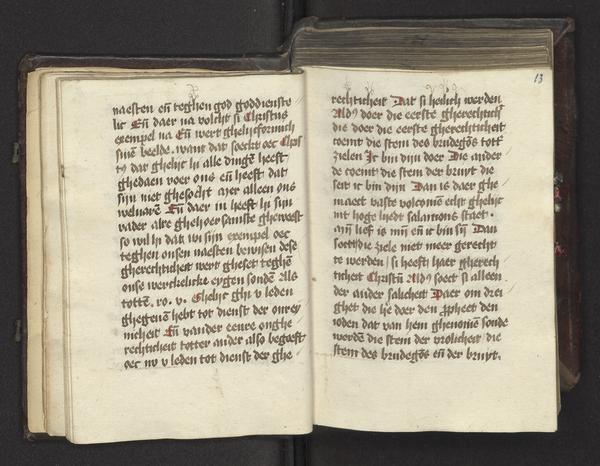 naesten en̄ teghen god goddiensto
lic En̄ daer na volcht si Christus
exempel na En̄ wert ghelijcformich
sinē beelde. want dat soeckt oec Chrs
to dat ghelijc hi alle dingē heeft
ghedaen voer ons en̄ heeft dat
sijn niet ghesocht mer alleen ons
welvarē En̄ daer in heeft hi sijn
vader alre ghehoersamste gheweest
so wil hi dat wi sijn exempel oec
teghen onsen naesten bewisen dese
gherechticheit wert gheset teghē
onse werckelicke eygen sondē Als
totten. ro. v. Ghelijc ghi v leden
ghegeuē hebt tot dienst der onrey
nicheit En̄ vander eenre onghe
rechticheit totter ander also begeeft
oec nv v leden tot dienst der ghe
13
rechticheit Dat si heilich werden
Aldꝰ doer die eerste gherechtich
die doer die eerste gherechticheit
coemt die stem des brudegōs totter
zielen Ic bin dijn doer Die ander
de coemt die stem der bruyt die
seit ic bin dijn Dan is daer ghe
maect vaste volcomē echt ghelijc
int hoge liedt salamons staet.
mijn lief is mijn en̄ ic bin sijn Dan
soect die ziele niet meer gerecht
te werden si heeft haer gherech
ticheit Christū Aldꝰ soect si alleen
der ander salicheit Daer om drei
ghet die he doer den prpheet den
ioden dat van hem ghenomē soude
werdē die stem der vrolicheit die
stem des brudegōs en̄ der bruyt.